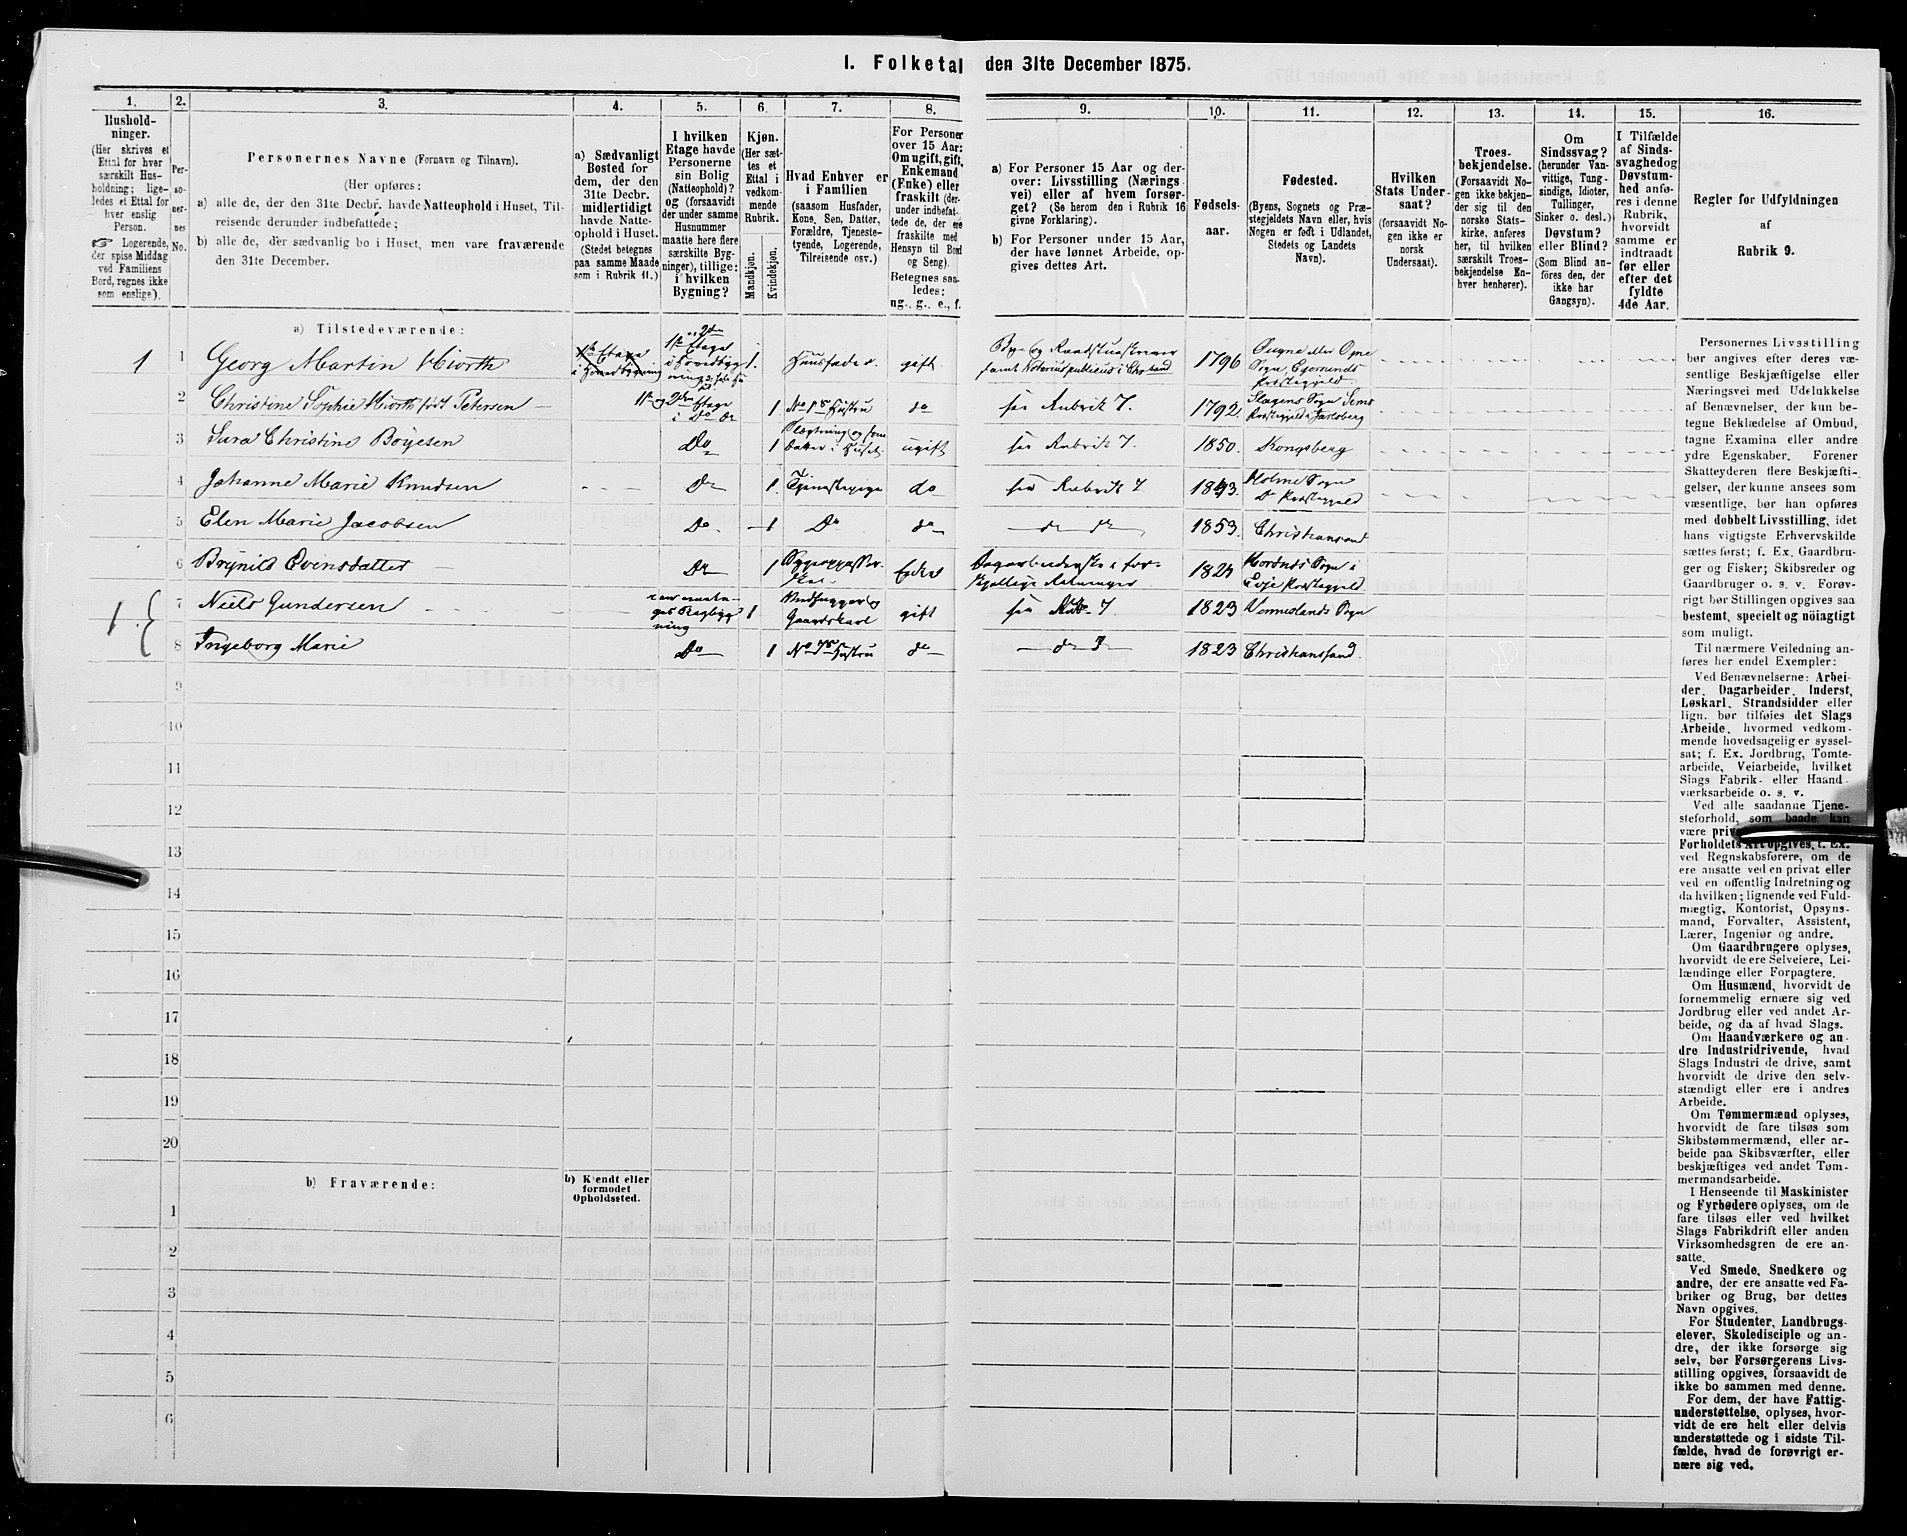 I. Folketal den 31te December 1875.
1.
2.
3.
4.
5.
6.
7.
8.
9.
10.
11.
12.
13.
14.
15.
16.
Husholdninger.
(Her skrives et
Ettal for hver
særskilt Husholdning; ligeledes
et Ettal for
hver enslig
Person.
☞ Logerende,
der spise Middag
ved Familiens
Bord, regnes ikke
som enslige).
Personernes
No.
Personernes Navne (Fornavn og Tilnavn).
(Her opføres:
a) alle de, der den 31te Decbr. havde Natteophold i Huset, Tilreisende derunder indbefattede;
b) alle de, der sædvanlig bo i Huset, men vare fraværende
den 31te December.
a) Sædvanligt
Bosted for
dem, der den
31te Decbr.
midlertidigt
havde Natteophold
i Huset.
(Stedet betegnes
paa samme Maade
som i Rubrik 11.)
I hvilken
Etage havde
Personerne
sin Bolig
(Natteophold)?
og (forsaavidt
der under samme
Husnummer
maatte høre flere
særskilte Bygninger),
tillige:
i hvilken
Bygning?
Kjøn.
(Her sættes
et
Ettal i
vedkommende
Rubrik.
Mandkjøn.
Kvindekjøn.
Hvad Enhver er
i Familien
(saasom Husfader,
Kone, Søn, Datter,
Forældre, Tjenestetyende,
Logerende,
Tilreisende osv.)
For Personer
over 15 Aar:
Om ugift, gift,
Enkemand
(Enke) eller
fraskilt (derunder
indbefattede
de, der ere
fraskilte med
Hensyn til Bord
og Seng).
Betegnes saaledes:
ug., g., e., f.
a) For Personer 15 Aar og derover:
Livsstilling (Næringsvei)
eller af hvem forsørget?
(Se herom den i Rubrik 16
givne Forklaring).
b) For Personer under 15 Aar,
der have lønnet Arbeide, opgives
dettes Art.
Fødselsaar.
Fødested.
(Byens, Sognets og Præstegjeldets
Navn eller, hvis
Nogen er født i Udlandet,
Stedets og Landets
Navn).
Hvilken
Stats Undersaat?
(forsaavidt Nogen
ikke er
norsk
Undersaat).
Troesbekjendelse.
(Forsaavidt Nogen
ikke bekjender
sig til den
norske Statskirke,
anføres
her, til hvilken
særskilt Troesbekjendelse
Enhver
henhører).
Om
Sindssvag?
(herunder Vanvittige,
Tungsindige,
Idioter,
Tullinger,
Sinker o. desl.)
Døvstum?
eller Blind?
(Som Blind anføres
den, der
ikke har
Gangsyn).
I Tilfælde
af Sindssvaghed og
Døvstumhed
anføres
i denne
Rubrik,
hvorvidt
samme er
indtraadt
før eller
efter det
fyldte
4de Aar.
Regler for Udfyldningen
af
Rubrik 9.
a) Tilstedeværende:
1
1 Georg Martin Hiorth 1ste Etage i Hovedbygning 1. Huusfader gift 1796
2 Christine Sophie Hiorth født Petersen 1 No 1s Hustru do see Rubrik 7. 1792. Slagens Sogn Sems Præstegjeld Jarlsberg
3 Sara Christine Bøyesen Do 1 ugift see Rubrik 7. 1850. Kongsberg
4 Johanne Marie Knudsen Do 1. Tjenestepige do see Rubrik 7 Holme Sogn Do Præstegjeld
5 Elen Marie Jacobsen Do 1 Do do do do 1853. Christiansand
6 Brynild Evensdatter Do 1 Hordnes Sogn i Evje Præstegjeld
1. 7 Niels Gundersen 1 Vedhugger og Gaardskarl gift see Rub. 7 1823 Venneslands Sogn
8 Ingeborg Marie Do 1 No 7s Hustru do 1823 Christianssand.
9
10
11
12
13
14
15
16
17
18
19
20
b) Fraværende:
b) Kjendt eller
formodet
Opholdssted.
1
2
3
4
5
6
Personernes Livsstilling
bør angives efter deres væsentlige
Beskjæftigelse eller
Næringsvei med Udelukkelse
af Benævnelser, der kun betegne
Beklædelse af Ombud,
tagne Examina eller andre
ydre Egenskaber. Forener
Skatteyderen flere Beskjæftigelser,
der kunne ansees som
væsentlige, bør han opføres
med dobbelt Livsstilling, idet
hans vigtigste Erhvervskilde
sættes først; f. Ex. Gaardbruger
og Fisker; Skibsreder og
Gaardbruger o. s. v. Forøvrigt
bør Stillingen opgives saa
bestemt, specielt og nöiagtigt
som muligt.
Til nærmere Veiledning anføres
her endel Exempler:
Ved Benævnelserne: Arbeider,
Dagarbeider, Inderst,
Løskarl, Strandsidder eller
lign. bør tilføies det Slags
Arbeide, hvormed vedkommende
hovedsagelig er sysselsat;
f. Ex. Jordbrug, Tomtearbeide,
Veiarbeide, hvilket
Slags Fabrik- eller Haandværksarbeide
o. s. v.
Ved alle saadanne Tjenesteforhold,
som baade kan
være
Forholdets Art opgives, f. Ex.
ved Regnskabsførere, om de
ere ansatte ved en privat eller
ved en offentlig Indretning og
da hvilken; lignende ved Fuldmægtig,
Kontorist, Opsynsmand,
Forvalter, Assistent,
Lærer, Ingeniør og andre.
Om Gaardbrugere oplyses,
hvorvidt de ere Selveiere, Leilændinge
eller Forpagtere.
Om Husmænd, hvorvidt de
fornemmelig ernære sig ved
Jordbrug eller ved andet Arbeide,
og da af hvad Slags.
Om Haandværkere og andre
Industridrivende, hvad
Slags Industri de drive, samt
hvorvidt de drive den selvstændigt
eller ere i andres
Arbeide.
Om Tømmermænd oplyses,
hvorvidt de fare tilsøs som
Skibstømmermænd, eller arbeide
paa Skibsværfter, eller
beskjæftiges ved andet Tømmermandsarbeide.
I Henseende til Maskinister
og Fyrbødere oplyses, om de
fare tilsøs eller ved hvilket
Slags Fabrikdrift eller anden
Virksomhedsgren de ere ansatte.
Ved Smede, Snedkere og
andre, der ere ansatte ved Fabriker
og Brug, bør dettes
Navn opgives.
For Studenter, Landbrugselever,
Skoledisciple og andre,
der ikke forsørge sig
selv, bør Forsørgerens Livsstilling
opgives, forsaavidt de
ikke bo sammen med denne.
For dem, der have Fattigunderstøttelse,
oplyses, hvorvidt
de ere helt eller delvis
understøttede og i sidste Tilfælde,
hvad de forøvrigt ernære
sig ved.